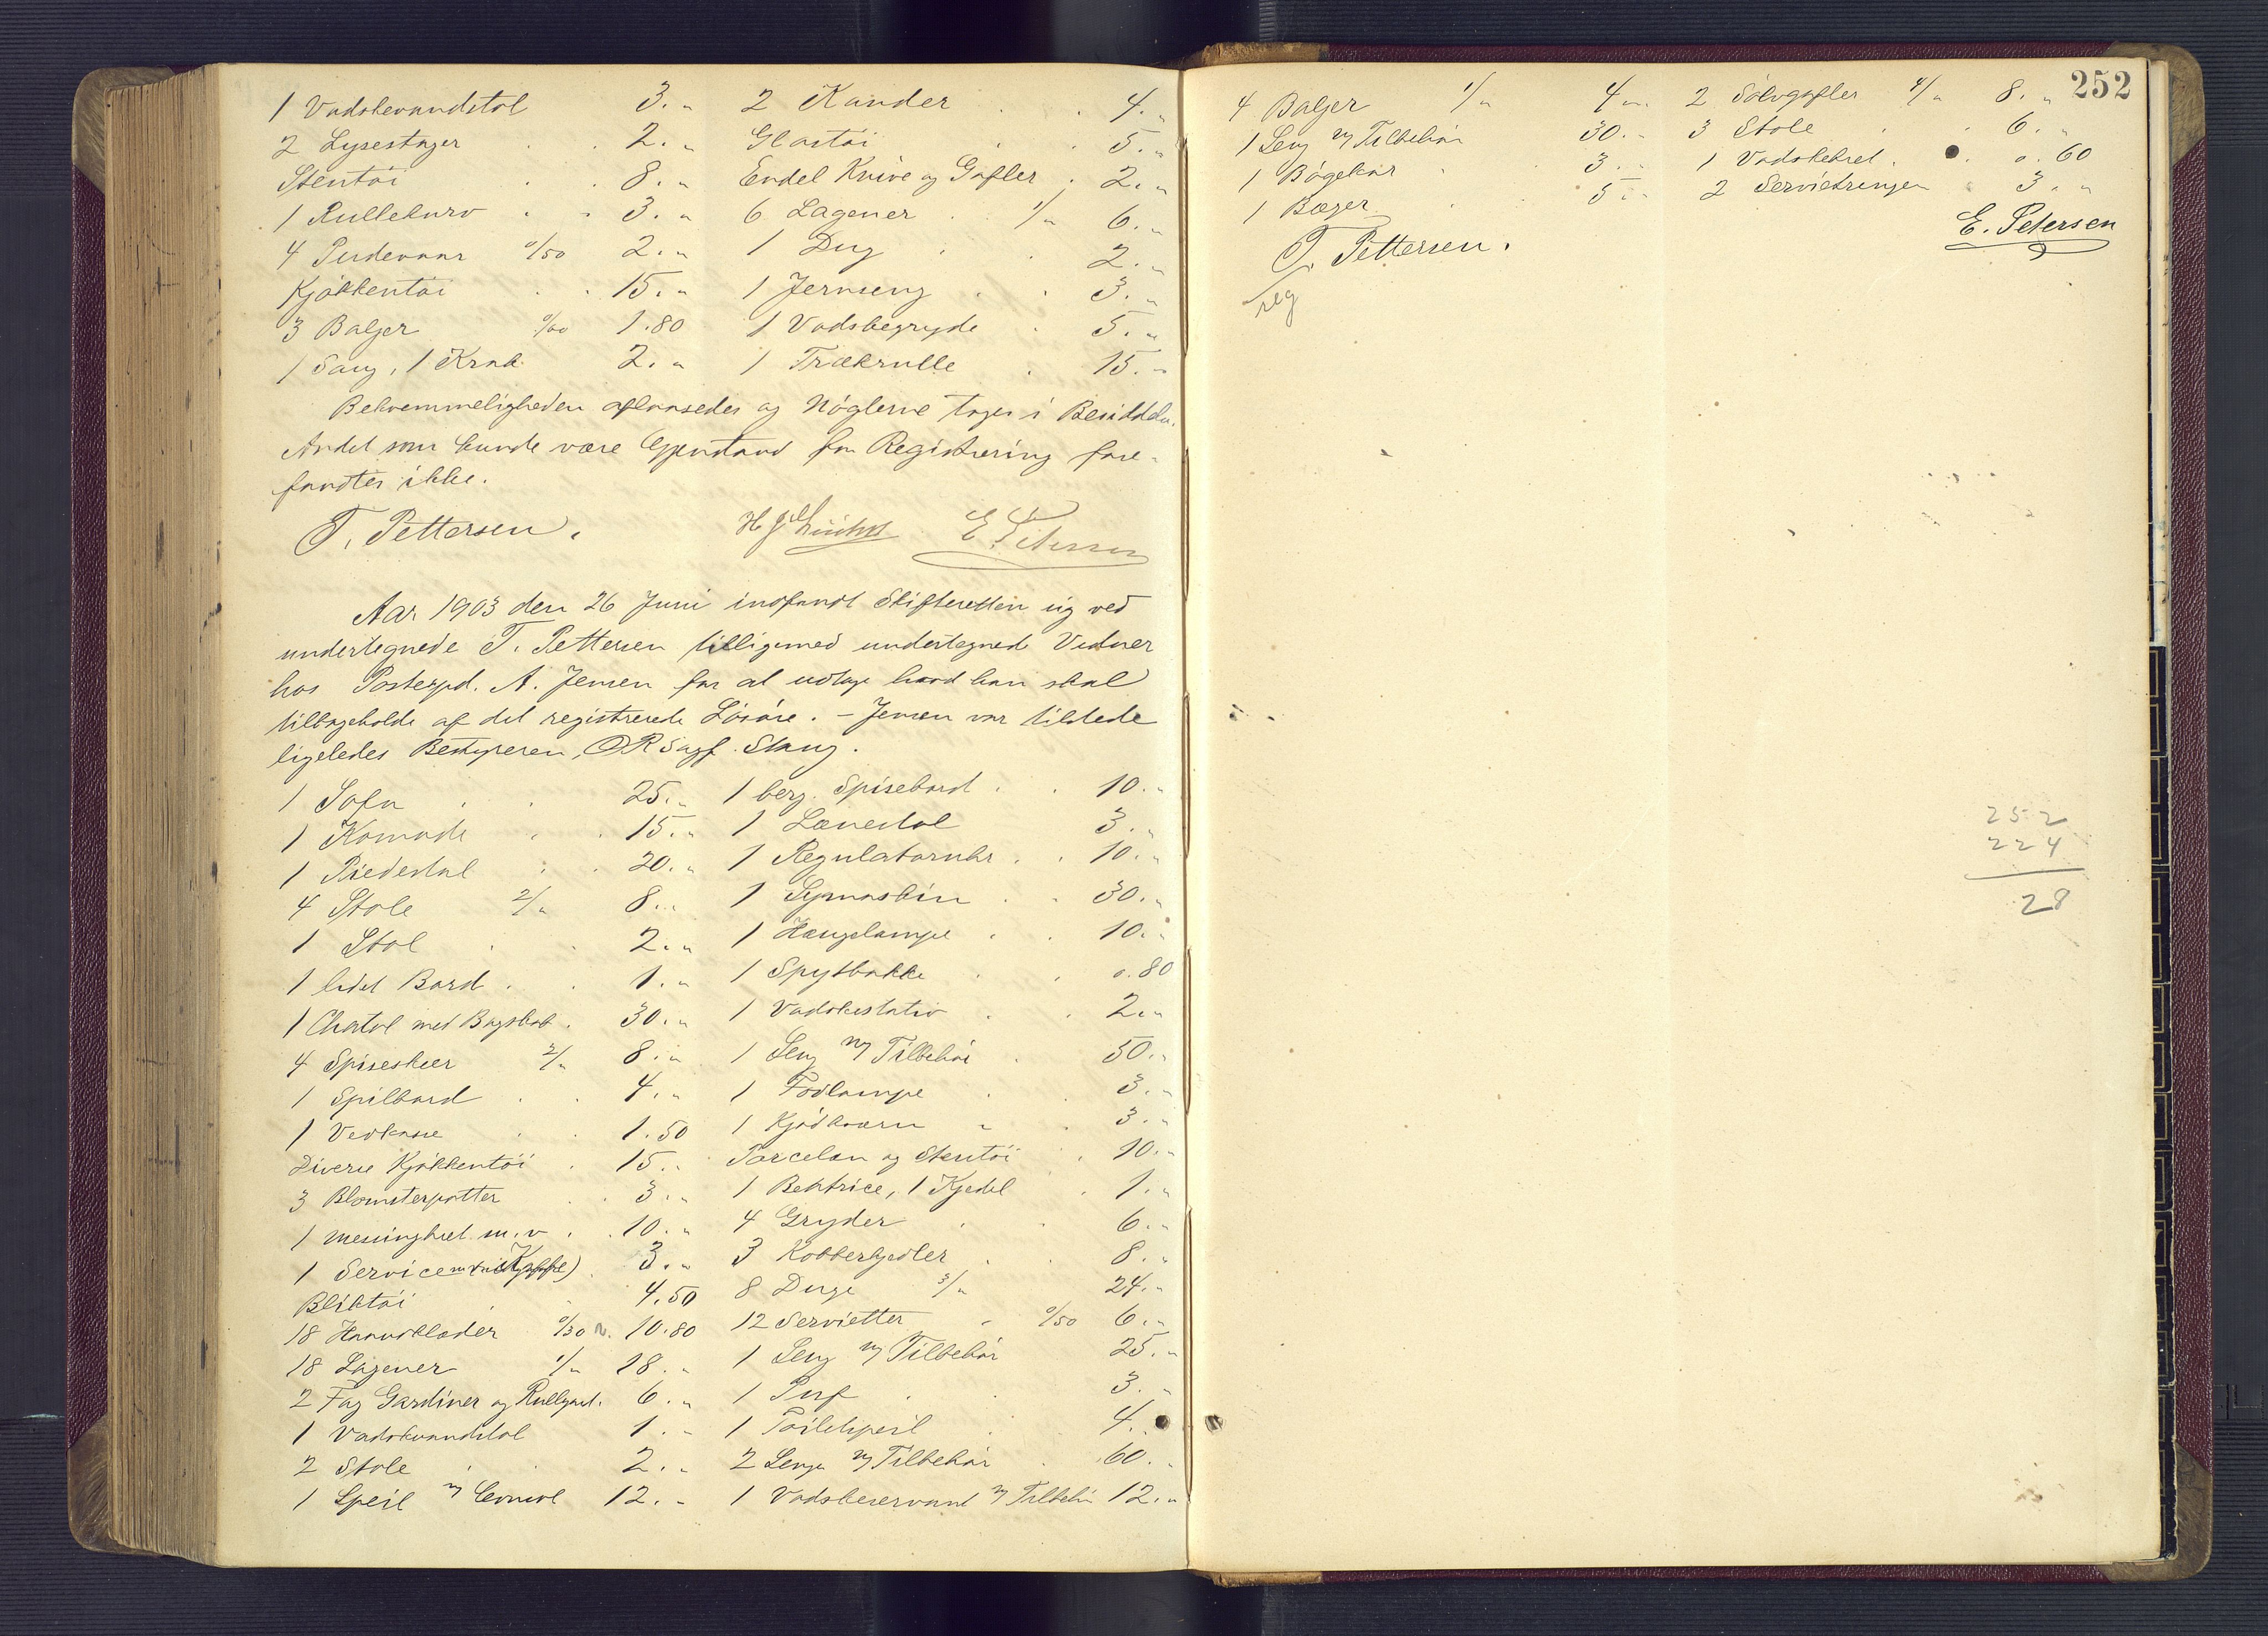 1 Vadskevandstol 3. " 2 Kander 4. "
2 Lysestager 2. " Glastøi 5. "
Stentøi 8. " Endel Knive og Gafler 2. "
1 Rullekurv 3. " 6 Lagener 1/" 6. "
4 Pudevaar 0/50 2. " 1 Dug 2. "
Kjøkkentøi 15. " 1 Jernseng 3. "
3 Baljer 0/60 1.80 1 Vadskegryde 5. "
1 Saug, 1 Krak 2. " 1 Trækrulle 15. "
Bekvemmeligheden aflaasedes og Nøglerne toges i Besiddelse.
Andet som kunde være Gjenstand for Registrering fore-
fandtes ikke.
T. Pettersen. E. Petersen
Aar 1903 den 26 Juni indfandt Skifteretten sig ved
undertegnede T. Pettersen tilligemed undertegnede Vidner
hos Postexpd. A. Jensen for at udtage hvad han skal
tilbageholde af det registrerede Løsøre. – Jensen var tilstede
ligeledes Bestyreren, ORSagf. Stang.
1 Sofa 25. " 1 berg. Spisebord 10. "
1 Komode 15. " 1 Lænestol 3. "
1 Piedestal 20. " 1 Regulatoruhr 10. "
4 Stole 2/" 8. " 1 Symaskin 30. "
1 Stol 2. " 1 Hængelampe 10. "
1 lidet Bord 1. " 1 Spytbakke 0.80
1 Chatol med Bogskab 30. " 1 Vadskestativ 2. "
4 Spiseskeer 2/" 8. " 1 Seng m/ Tilbehør 50. "
1 Spilbord 4. " 1 Fodlampe 3. "
1 Vedkasse 1.50 1 Kjødkværn 3. "
Diverse Kjøkkentøi 15. " Porcelæn og Stentøi 10. "
3 Blomsterpotter 3. " 1 Bektrice, 1 Kjedel 1. "
1 messingbret m. v. 10. " 4 Gryder 6. "
1 Service 3. " 3 Kobberkjedler 8. "
Bliktøi 4.50 8 Duge 3/" 24. "
18 Haandklæder 10.80 12 Servietter 0/50 6. "
18 Lagener 1/" 18. " 1 Seng m/ Tilbehør 25. "
2 Fag Gardiner og Rullgard. 6. " 1 Puf 3. "
1 Vadskvandstol 1. " 1 Toiletspeil 4. "
2 Stole 2. " 2 Senge m/ Tilbehør 60. "
1 Speil m/ Consol 12. " 1 Vadskeservant m/ Tilbehør 12. "
252
4 Baljer 1/" 4 " 2 Sølvgafler 4/" 8. "
1 Seng m/ Tilbehør 30. " 3 Stole 6. "
1 Bøgekar 3. " 1 Vadskebret 0.60
1 Bæger 5. " 2 Servietringer 3. "
T. Pettersen. E. Petersen
reg
252
224
28